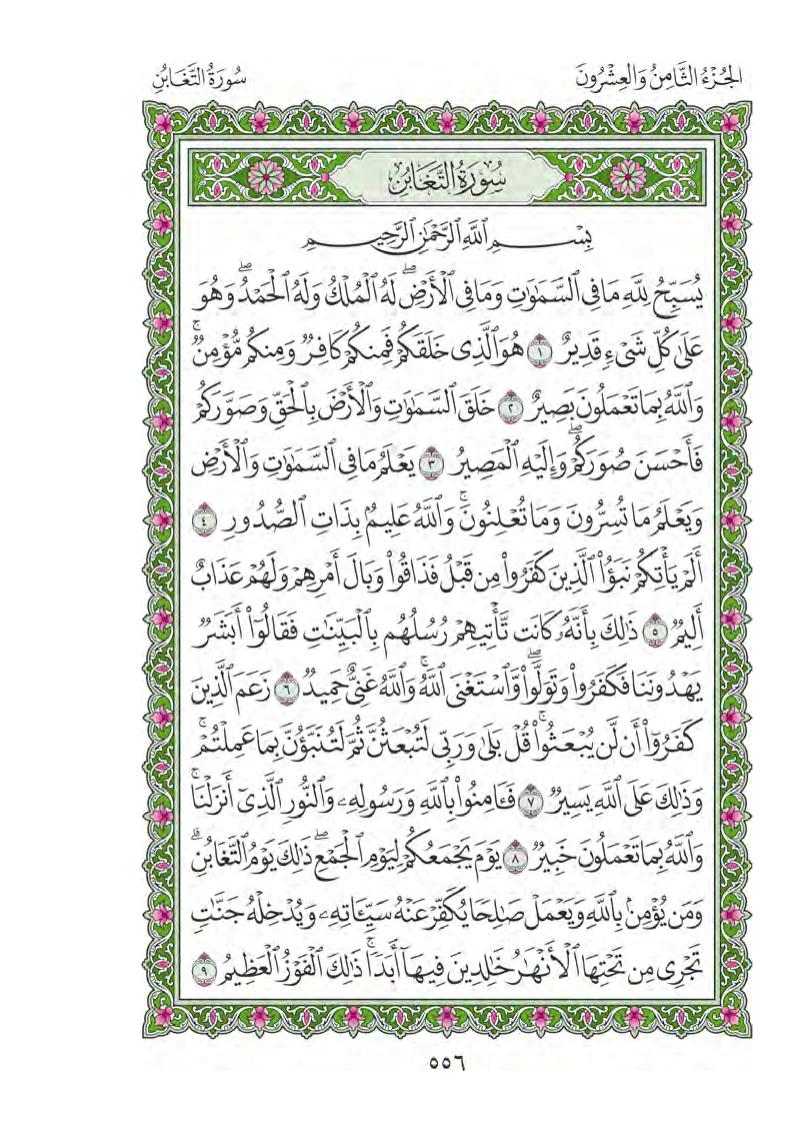 الجُزْءُ الثَّامِنُ وَالعِشْرُونَ
سُورَةُ التَّغَابُنِ
سُورَةُ التَّغَابُنِ
بِسْمِ ٱللَّهِ ٱلرَّحْمَٰنِ ٱلرَّحِيمِ
يُسَبِّحُ لِلَّهِ مَا فِى ٱلسَّمَٰوَٰتِ وَمَا فِى ٱلْأَرْضِۖ لَهُ ٱلْمُلْكُ وَلَهُ ٱلْحَمْدُۖ وَهُوَ
عَلَىٰ كُلِّ شَىْءٍ قَدِيرٌ ١ هُوَ ٱلَّذِى خَلَقَكُمْ فَمِنكُمْ كَافِرٌ وَمِنكُم مُّؤْمِنٌۚ
وَٱللَّهُ بِمَا تَعْمَلُونَ بَصِيرٌ ٢ خَلَقَ ٱلسَّمَٰوَٰتِ وَٱلْأَرْضَ بِٱلْحَقِّ وَصَوَّرَكُمْ
فَأَحْسَنَ صُوَرَكُمْۖ وَإِلَيْهِ ٱلْمَصِيرُ ٣ يَعْلَمُ مَا فِى ٱلسَّمَٰوَٰتِ وَٱلْأَرْضِ
وَيَعْلَمُ مَا تُسِرُّونَ وَمَا تُعْلِنُونَۚ وَٱللَّهُ عَلِيمٌۢ بِذَاتِ ٱلصُّدُورِ ٤
أَلَمْ يَأْتِكُمْ نَبَؤُا۟ ٱلَّذِينَ كَفَرُوا۟ مِن قَبْلُ فَذَاقُوا۟ وَبَالَ أَمْرِهِمْ وَلَهُمْ عَذَابٌ
أَلِيمٌ ٥ ذَٰلِكَ بِأَنَّهُۥ كَانَت تَّأْتِيهِمْ رُسُلُهُم بِٱلْبَيِّنَٰتِ فَقَالُوٓا۟ أَبَشَرٌ
يَهْدُونَنَا فَكَفَرُوا۟ وَتَوَلَّوا۟ۖ وَّٱسْتَغْنَى ٱللَّهُۚ وَٱللَّهُ غَنِىٌّ حَمِيدٌ ٦ زَعَمَ ٱلَّذِينَ
كَفَرُوٓا۟ أَن لَّن يُبْعَثُوا۟ۚ قُلْ بَلَىٰ وَرَبِّى لَتُبْعَثُنَّ ثُمَّ لَتُنَبَّؤُنَّ بِمَا عَمِلْتُمْۚ
وَذَٰلِكَ عَلَى ٱللَّهِ يَسِيرٌ ٧ فَـَٔامِنُوا۟ بِٱللَّهِ وَرَسُولِهِۦ وَٱلنُّورِ ٱلَّذِىٓ أَنزَلْنَاۚ
وَٱللَّهُ بِمَا تَعْمَلُونَ خَبِيرٌ ٨ يَوْمَ يَجْمَعُكُمْ لِيَوْمِ ٱلْجَمْعِۖ ذَٰلِكَ يَوْمُ ٱلتَّغَابُنِۗ
وَمَن يُؤْمِنۢ بِٱللَّهِ وَيَعْمَلْ صَٰلِحًا يُكَفِّرْ عَنْهُ سَيِّـَٔاتِهِۦ وَيُدْخِلْهُ جَنَّٰتٍ
تَجْرِى مِن تَحْتِهَا ٱلْأَنْهَٰرُ خَٰلِدِينَ فِيهَآ أَبَدًاۚ ذَٰلِكَ ٱلْفَوْزُ ٱلْعَظِيمُ ٩
٥٥٦